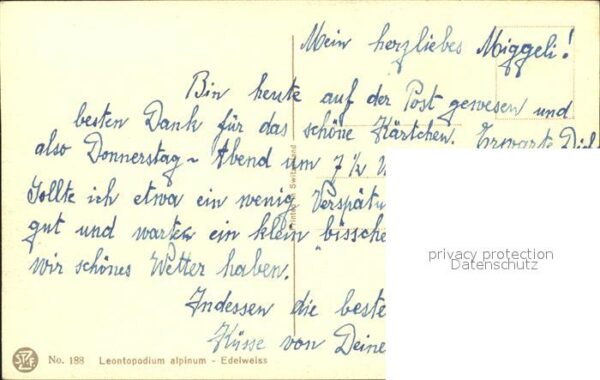 Mein herzliebes Miggeli!
Bin heute auf der Post gewesen und
besten Dank für das schöne Kärtchen. Erwarte Dich
also Donnerstag-Abend um 7½
Sollte ich etwa ein wenig Verspätu
gut und warten ein klein bissche
wir schönes Wetter haben.
Indessen die beste
Küsse von Deine
Printed in Switzerland
privacy protection
Datenschutz
No. 188 Leontopodium alpinum - Edelweiss